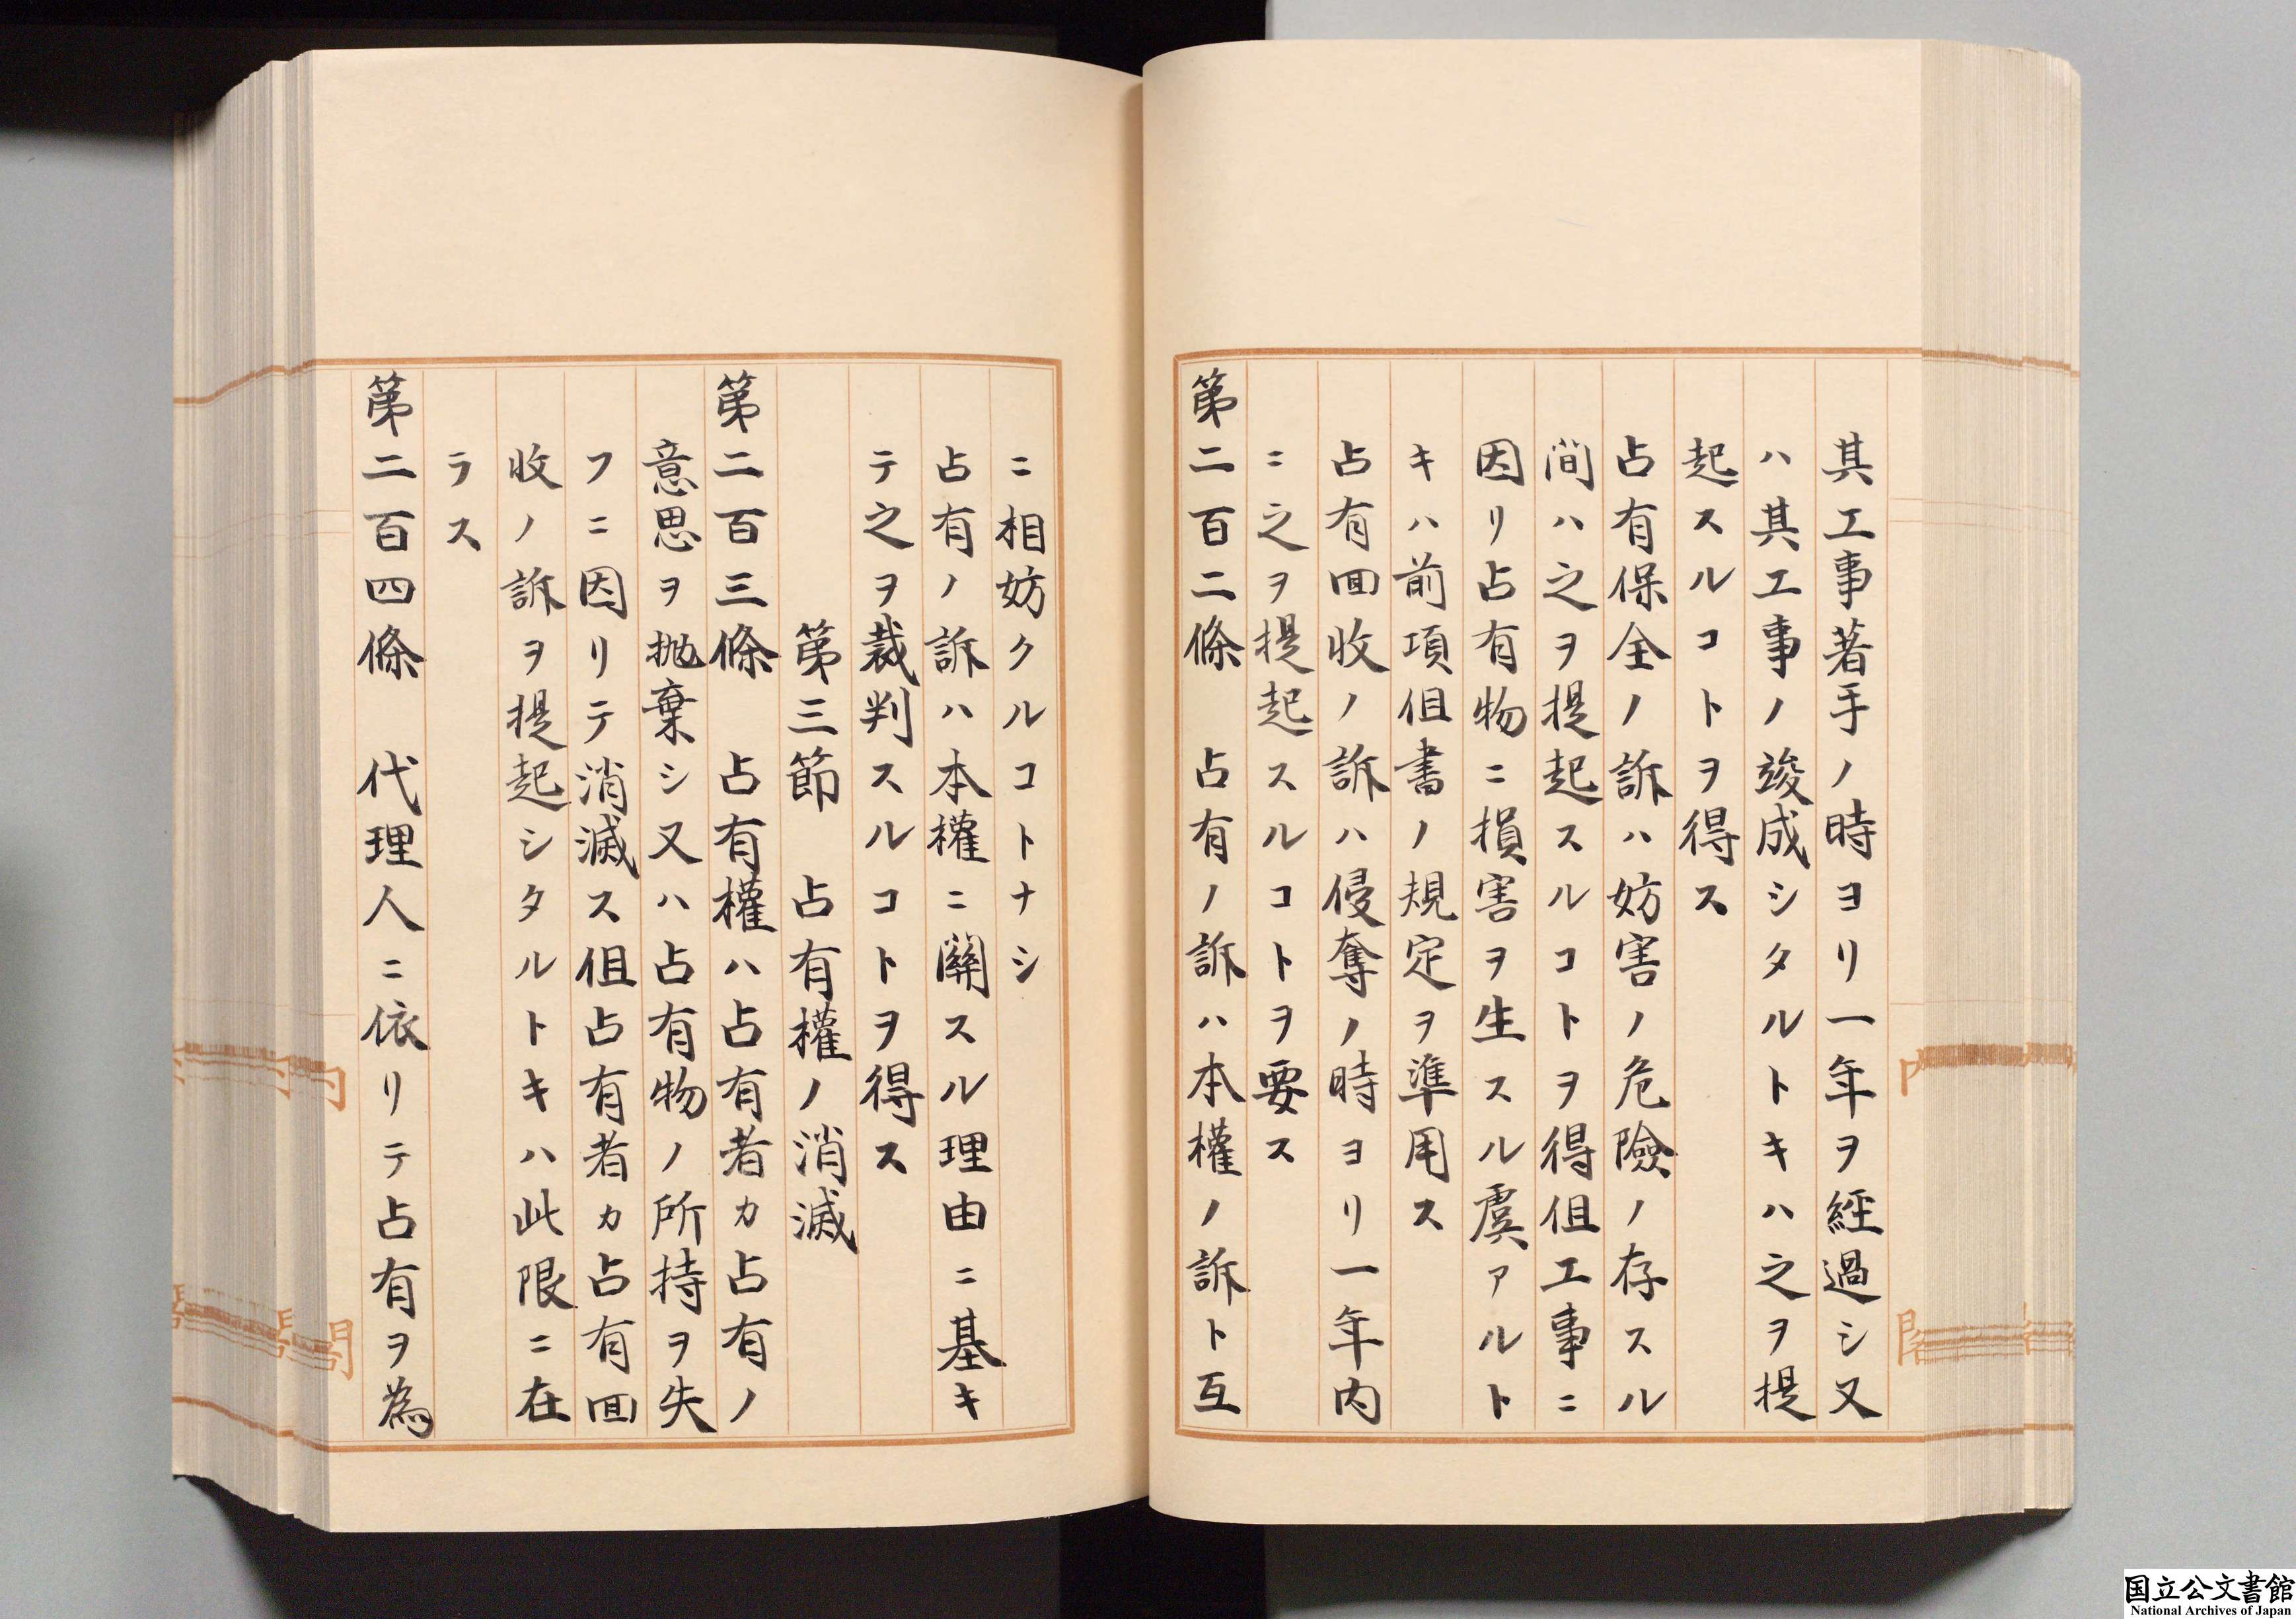 其工事著手ノ時ヨリ一年ヲ經過シ又
ハ其工事ノ竣成シタルトキハ之ヲ提
起スルコトヲ得ス
占有保全ノ訴ハ妨害ノ危險ノ存スル
間ハ之ヲ提起スルコトヲ得但工事ニ
因リ占有物ニ損害ヲ生スル虞アルト
キハ前項但書ノ規定ヲ準用ス
占有回收ノ訴ハ侵奪ノ時ヨリ一年内
ニ之ヲ提起スルコトヲ要ス
第二百二條　占有ノ訴ハ本權ノ訴ト互
ニ相妨クルコトナシ
占有ノ訴ハ本權ニ關スル理由ニ基キ
テ之ヲ裁判スルコトヲ得ス
第三節　占有權ノ消滅
第二百三條　占有權ハ占有者カ占有ノ
意思ヲ抛棄シ又ハ占有物ノ所持ヲ失
フニ因リテ消滅ス但占有者カ占有回
收ノ訴ヲ提起シタルトキハ此限ニ在
ラス
第二百四條　代理人ニ依リテ占有ヲ為
国立公文書館
National Archives of Japan